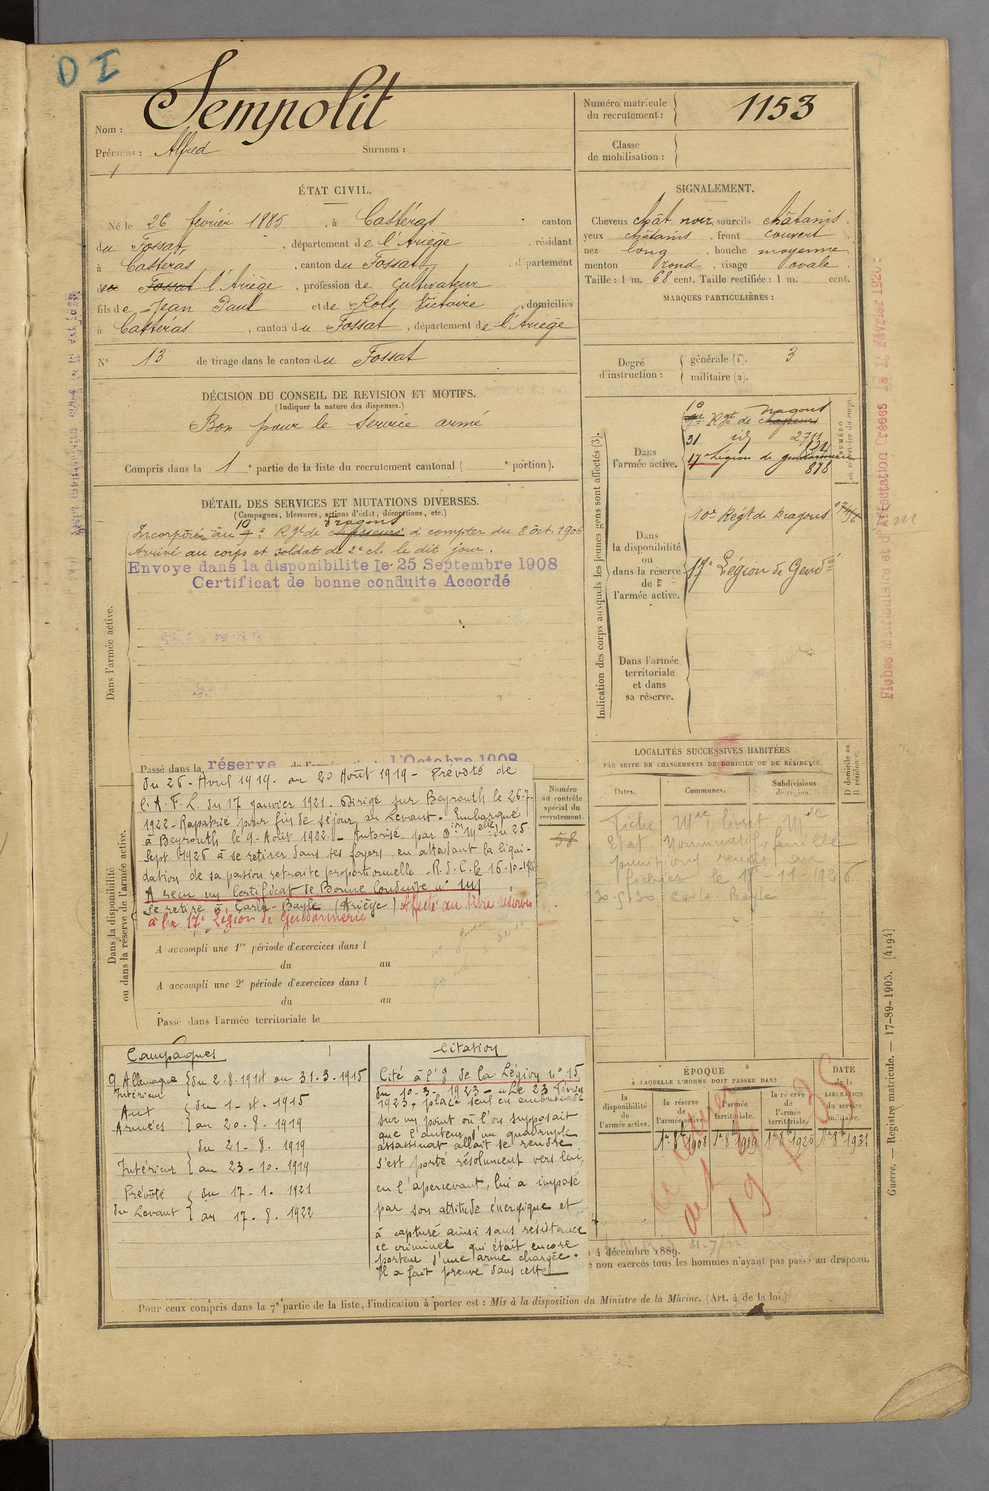 D I
Nom : Sempolit
Prénoms : Alfred Surnom :
Numéro matricule du recrutement : 1153
Classe de mobilisation :
ÉTAT CIVIL.
Né le 26 février 1885, à Castéras, canton
du Fossat, département de l'Ariège, résidant
à Castéras, canton du Fossat, département
de Fossat l'Ariège, profession de Cultivateur
fils de Jean Paul et de Rols, Victoire, domiciliés
à Castéras, canton du Fossat, département de l'Ariège
N° 13 de tirage dans le canton du Fossat
SIGNALEMENT.
Cheveux chât noir sourcils châtains
yeux châtains, front couvert
nez long, bouche moyenne
menton rond, visage ovale.
Taille : 1 m. 68 cent. Taille rectifiée : 1 m. cent.
MARQUES PARTICULIÈRES :
Degré d'instruction : générale (1). 3
militaire (2).
DÉCISION DU CONSEIL DE REVISION ET MOTIFS.
(Indiquer la nature des dispenses.)
Bon pour le service armé
Compris dans la 1e partie de la liste du recrutement cantonal ( e portion).
DÉTAIL DES SERVICES ET MUTATIONS DIVERSES.
(Campagnes, blessures, actions d'éclat, décorations, etc.)
Dans l'armée active.
Incorporé au 10e Rgt de Dragons à compter du 8 oct. 1906
Arrivé au corps et soldat de 2e cl. le dit jour.
Envoye dans la disponibilité le 25 Septembre 1908
Certificat de bonne conduite Accordé
Passé dans la réserve de l'armée l'Octobre 1908
Dans la disponibilité ou dans la réserve de l'armée active.
du 26 - Avril 1919. au 20 Août 1919 - Prévôté de
l'A. F. L. du 17 janvier 1921. Dirigé sur Beyrouth le 26-7-
1922 - Rapatrié pour fin de séjour au Levant. Embarqué
à Beyrouth le 9 - Août 1922. - Autorisé par Don Melle du 25
Sept 1926 à se retirer dans ses foyers, en attendant la liqui-
dation de sa pension retraite proportionnelle - R. d. C. le 16-10-
A reçu un Certificat de Bonne Conduite n°
se retire à Carla-Bayle (Ariège) Affecté au titre réserves
à la 17e Légion de Gendarmerie
A accompli une 1re période d'exercices dans l
du au
A accompli une 2e période d'exercices dans l
du au
Passé dans l'armée territoriale le
Numéro au contrôle spécial du recrutement.
58
Indication des corps auxquels les jeunes gens sont affectés (3).
NUMÉRO
Dans l'armée active.
10e Rgt de Dragons
31 id 2711
17e Légion de gendarmerie
878
Dans la disponibilité ou dans la réserve de l'armée active.
10e Régt de Dragons
17e Légion de Gendie
Dans l'armée territoriale et dans sa réserve.
LOCALITÉS SUCCESSIVES HABITÉES
PAR SUITE DE CHANGEMENTS DE DOMICILE OU DE RÉSIDENCE.
Dates. Communes. Subdivisions de région. D domicile ou R résidence.
Fiche Mle, livret Mle
Etat Nominatif, feuille
punitions
fichier le 18-11-1926
30-5-30 Carla Bayle
Campagnes
C. Allemagne du 2.8.1914 au 31.3.1915
Intérieur
Aux Armées du 1-4-1915 au 20-8-1919
Intérieur du 21-8-1919 au 23-10-1919
Prévôté du Levant du 17-1-1921 au 17-8-1922
Citation
Cité à l'O de la Légion n° 15
du 10-3-1923 - "Le 23 février
1923, placé seul en embuscade
sur un point où l'on supposait
que l'auteur d'un quadruple
assassinat allait se rendre
s'est porté résolument vers lui,
en l'apercevant, lui a imposé
par son attitude énergique et
à capturé ainsi sans resistance
ce criminel qui était encore
porteur d'une arme chargée.
Il a fait preuve dans cette
ÉPOQUE
À LAQUELLE L'HOMME DOIT PASSER DANS
la disponibilité de l'armée active. la réserve de l'armée active. l'armée territoriale. la réserve de l'armée territoriale.
DATE de la LIBÉRATION du service militaire.
1er 8bre 1908 1er 8bre 1919 1er 8bre 1925 1er 8bre 1931
4 décembre 1889.
non exercés tous les hommes n'ayant pas passé au drapeau.
Pour ceux compris dans la 7e partie de la liste, l'indication à porter est : Mis à la disposition du Ministre de la Marine. (Art. 4 de la loi.)
Guerre. — Registre matricule. — 17-89-1905. [4194]
Fiches Matriculaire et d'Affectation Créées le 1 Février 1920.